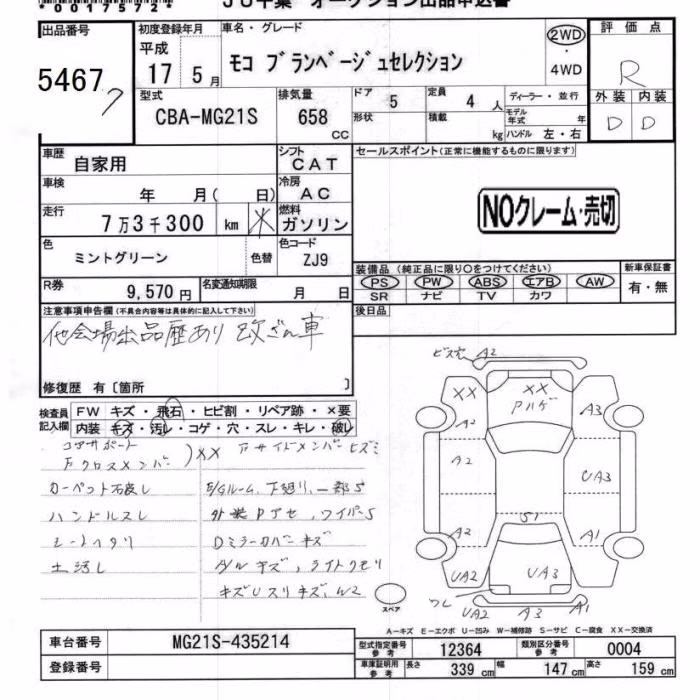 *0017572*
JU千葉 オークション出品申込書
出品番号
5467
初度登録年月
平成
17 5月
車名・グレード
モコ ブランベージュセレクション
2WD
・
4WD
評価点
R
外装 内装
D D
型式
CBA-MG21S
排気量
658
CC
ドア 5
定員 4 人
形状
積載 kg
ディーラー・並行
モデル年式 年
ハンドル 左・右
車歴 自家用
シフト CAT
車検 年 月( 日)
冷房 AC
走行 7万3千300 km
燃料 ガソリン
色 ミントグリーン 色替
色コード ZJ9
R券 9,570円
名変通知期限 月 日
セールスポイント(正常に機能するものに限ります)
NOクレーム・売切
装備品 (純正品に限り○をつけてください)
PS PW ABS エアB AW
SR ナビ TV カワ
新車保証書
有・無
後日品
注意事項申告欄(不具合内容等は具体的に記入して下さい)
他会場出品歴あり 改ざん車
修復歴 有〔箇所 〕
検査員記入欄
FW キズ・飛石・ヒビ割・リペア跡・×要
内装 キズ・汚レ・コゲ・穴・スレ・キレ・破レ
コアサポート
Fクロスメンバー )XX
カーペット汚レ
ハンドルスレ
シートヘタリ
E/Gルーム、下廻り、一部S
Dミラーカバーキズ
ビス穴 A2
XX XX
A2 A3
A2 UA3
S1
A2 A1
UA2 UA3
ワレ UA2 A3 A1
スペア
A－キズ E－エクボ U－凹み W－補修跡 S－サビ C－腐食 XX－交換済
車台番号 MG21S-435214
登録番号
型式指定番号 参考 12364
類別区分番号 参考 0004
車庫証明用 参考 長さ 339 cm 幅 147 cm 高さ 159 cm